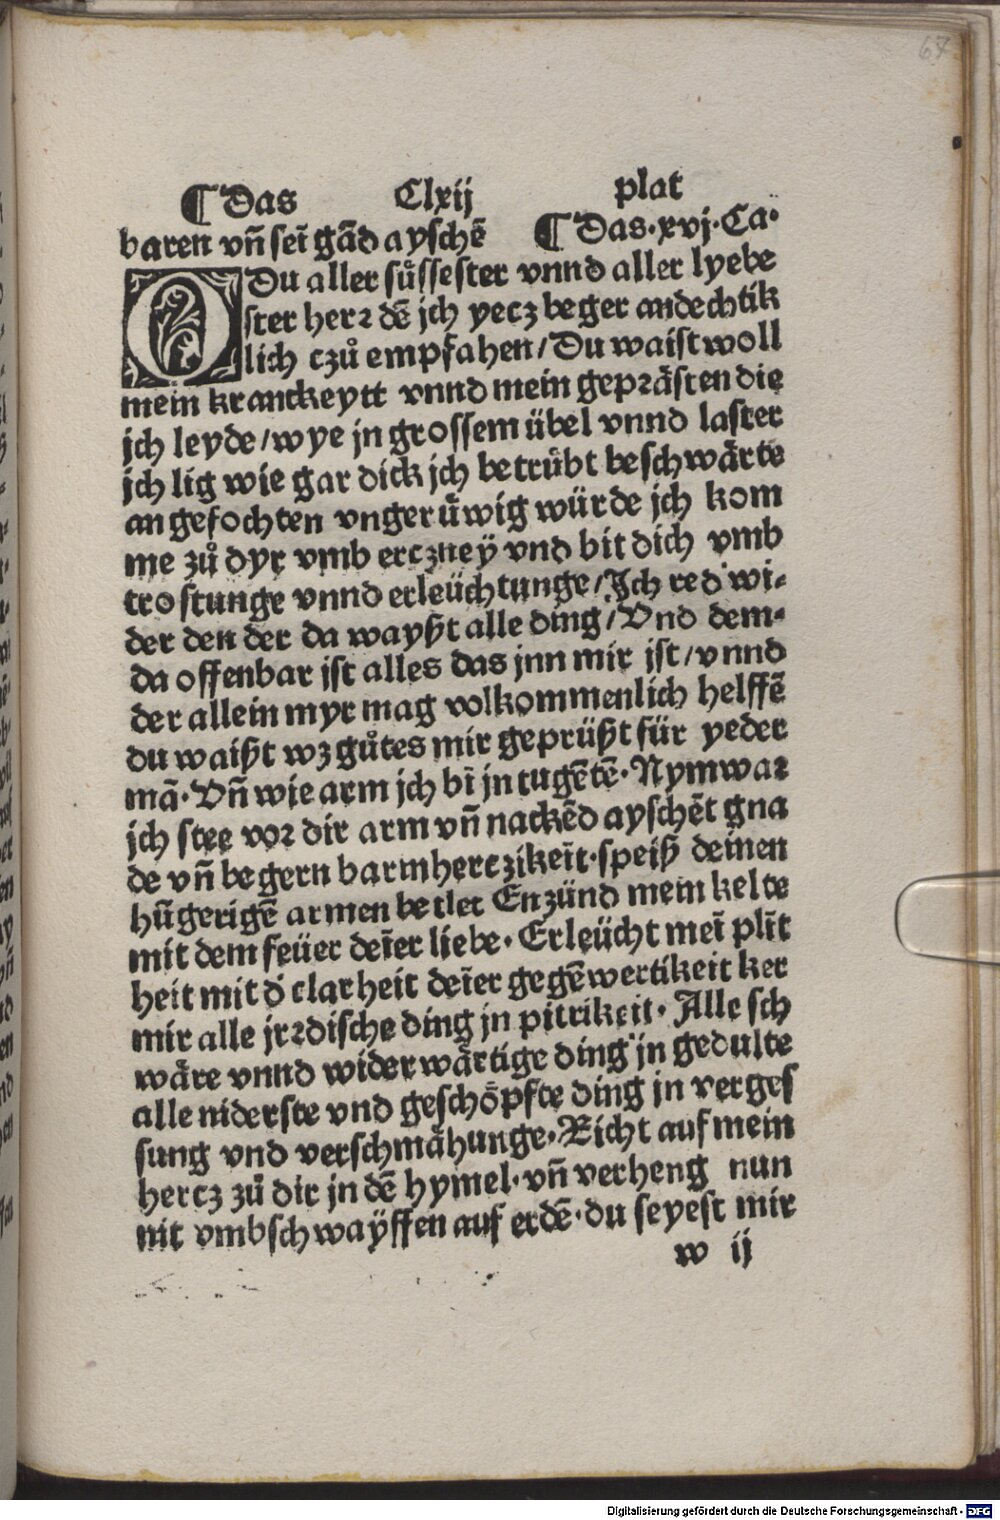 67
¶ Das Clxij plat
baren vñ seī gād ayschē ¶ Das·xvj·Ca·
O Du aller sůssester vnnd aller lyebe
ster herꝛ dē jch yecz beger andechtik
lich czů empfahen/Du waist woll
mein kranckeytt vnnd mein gepꝛästen die
jch leyde/wye jn grossem übel vnnd laster
jch lig wie gar dick jch betrůbt beschwärte
angefochten vngerůwig würde jch kom
me zů dyr vmb erczneÿ vnd bit dich vmb
trostunge vnnd erleüchtunge/Jch red wi-
der den der da wayßt alle ding/Vnd dem-
da offenbar jst alles das jnn mir jst/vnnd
der allein myr mag volkommenlich helffē
du waißt wz gůtes mir geprüßt für yeder
mā· Vñ wie arm jch bī jn tugētē· Nymwaꝛ
jch stee voꝛ dir arm vñ nackēd ayschēt gna
de vñ begern barmherczikeīt·speiß deinen
hūgerigē armen betler Enzünd mein kelte
mit dem feüer deīer liebe· Erleücht meī plīt
heit mit d' clarheit deīer gegēwertikeit ker
mir alle jrꝛdische ding jn pitrikeit· Alle sch
wäre vnnd widerwärtige ding jn gedulte
alle niderste vnd geschöpfte ding jn verges
sung vnd verschmähunge· Richt auf mein
hercz zů dir jn dē hymel· vñ verheng nun
nit vmbschwaÿffen auf erdē· du seyest mir
w ij
Digitalisierung gefördert durch die Deutsche Forschungsgemeinschaft - DFG